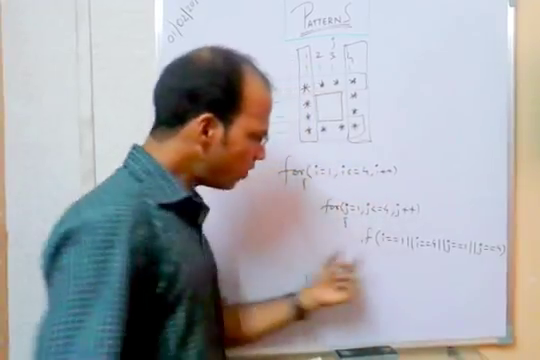 01/02/20
PATTERNS
j
1 2 3 4
* * * *
* *
* *
* * * *
for(i=1, i<=4, i++)
{
for(j=1, j<=4, j++)
{
if(i==1||i==4||j==1||j==4)